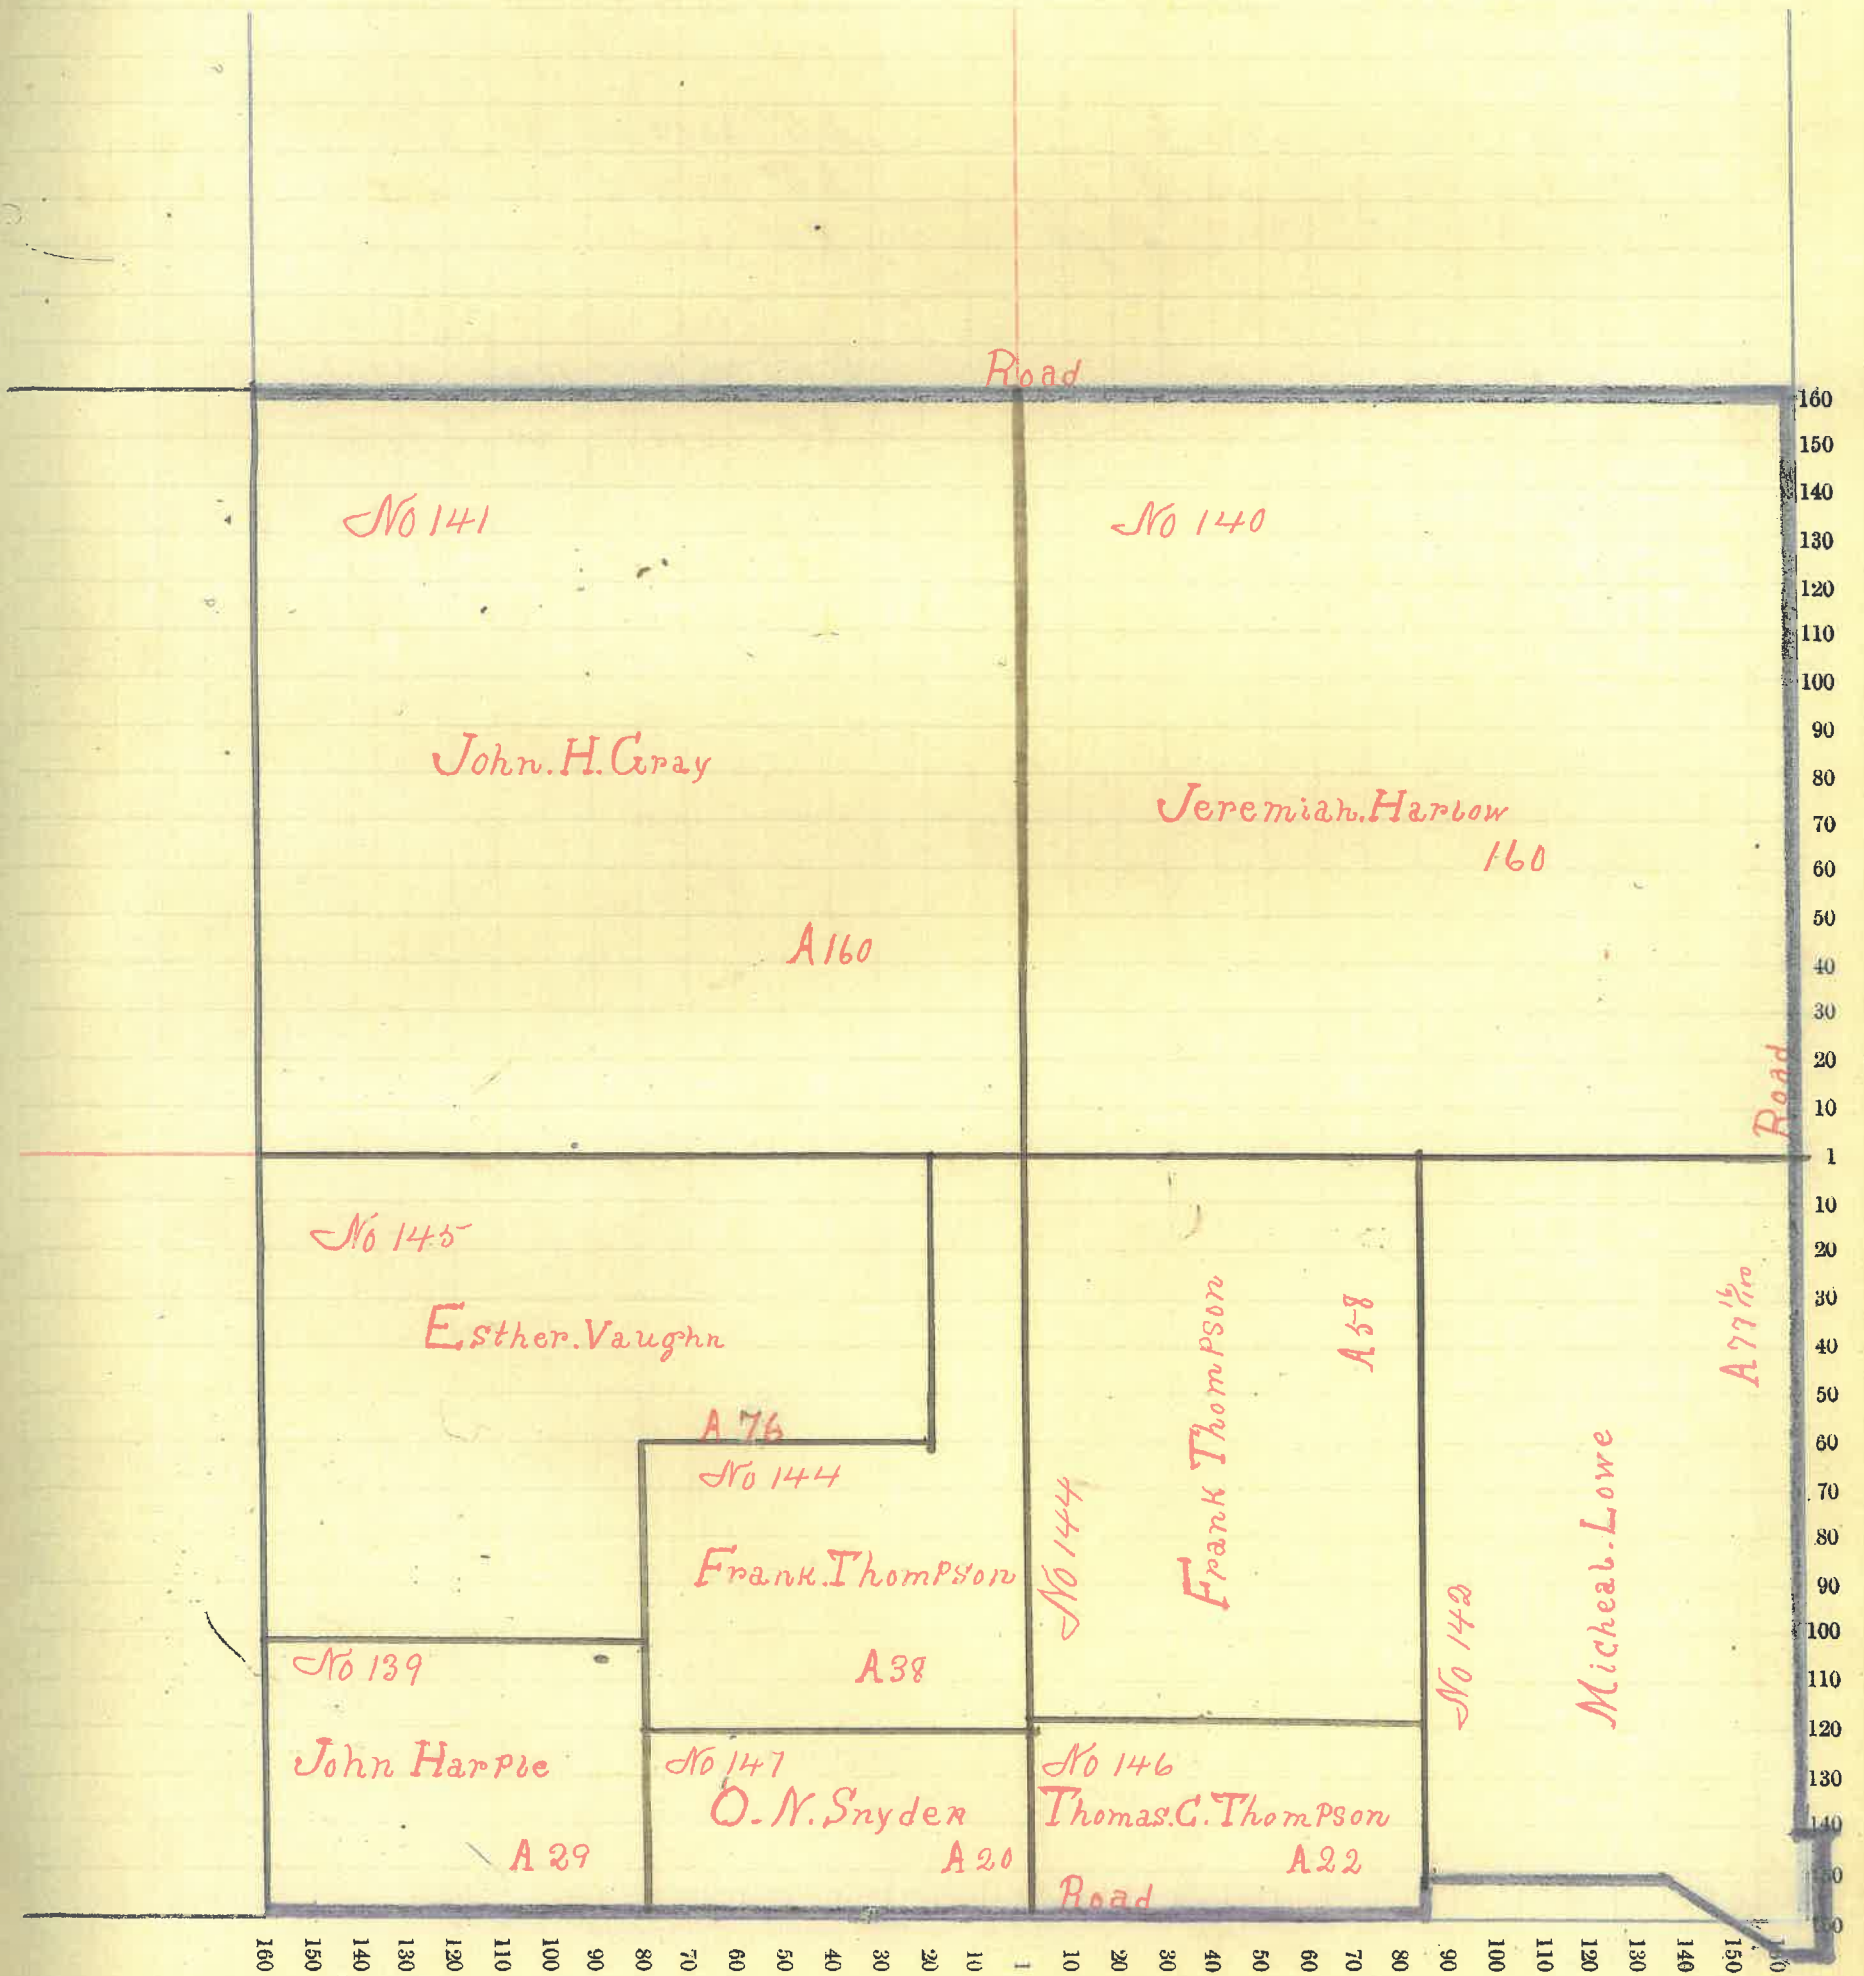 Road
No 141
John. H. Gray
A 160
No 140
Jeremiah. Harlow
160
Road
No 145
Esther. Vaughn
A 76
No 144
Frank. Thompson
A 38
No 144
Frank Thompson
A 58
No 142
Micheal. Lowe
A 77 16/100
No 139
John Harple
A 29
No 147
O. N. Snyder
A 20
No 146
Thomas. C. Thompson
A 22
Road
160
150
140
130
120
110
100
90
80
70
60
50
40
30
20
10
1
10
20
30
40
50
60
70
80
90
100
110
120
130
140
150
160
160 150 140 130 120 110 100 90 80 70 60 50 40 30 20 10 1 10 20 30 40 50 60 70 80 90 100 110 120 130 140 150 160